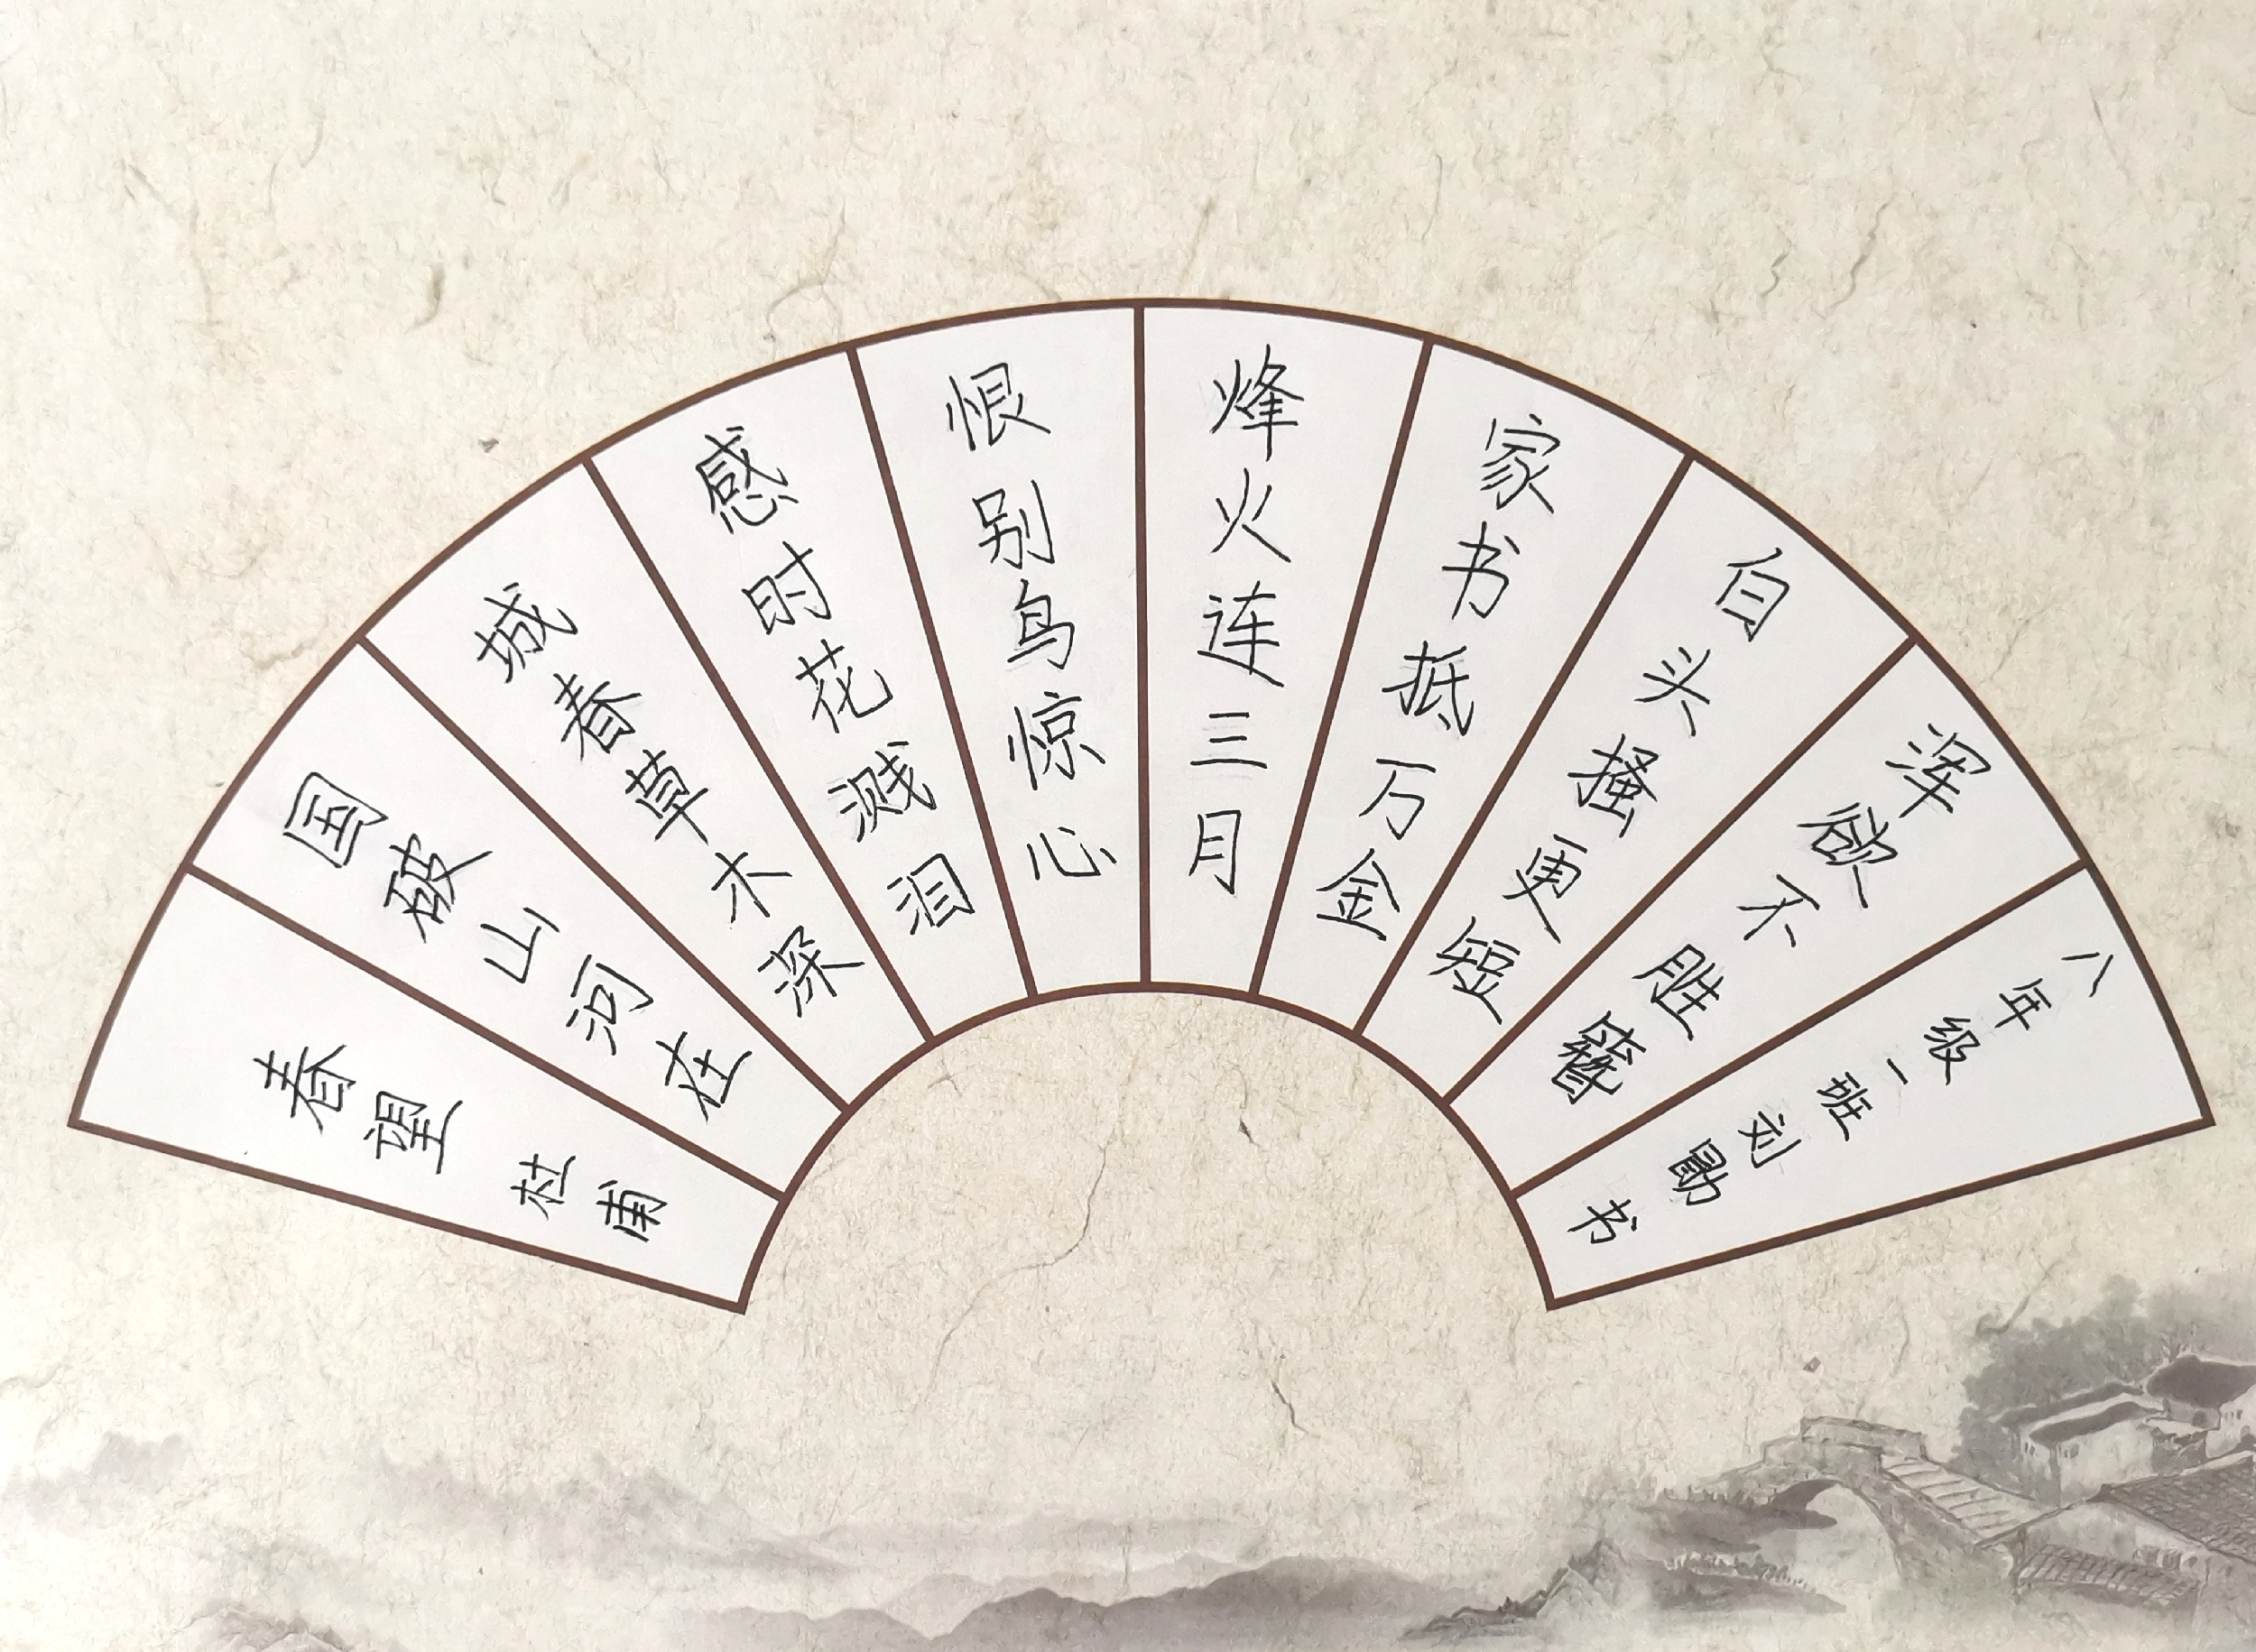 春望 杜甫
国破山河在
城春草木深
感时花溅泪
恨别鸟惊心
烽火连三月
家书抵万金
白头搔更短
浑欲不胜簪
八年级一班刘勖书